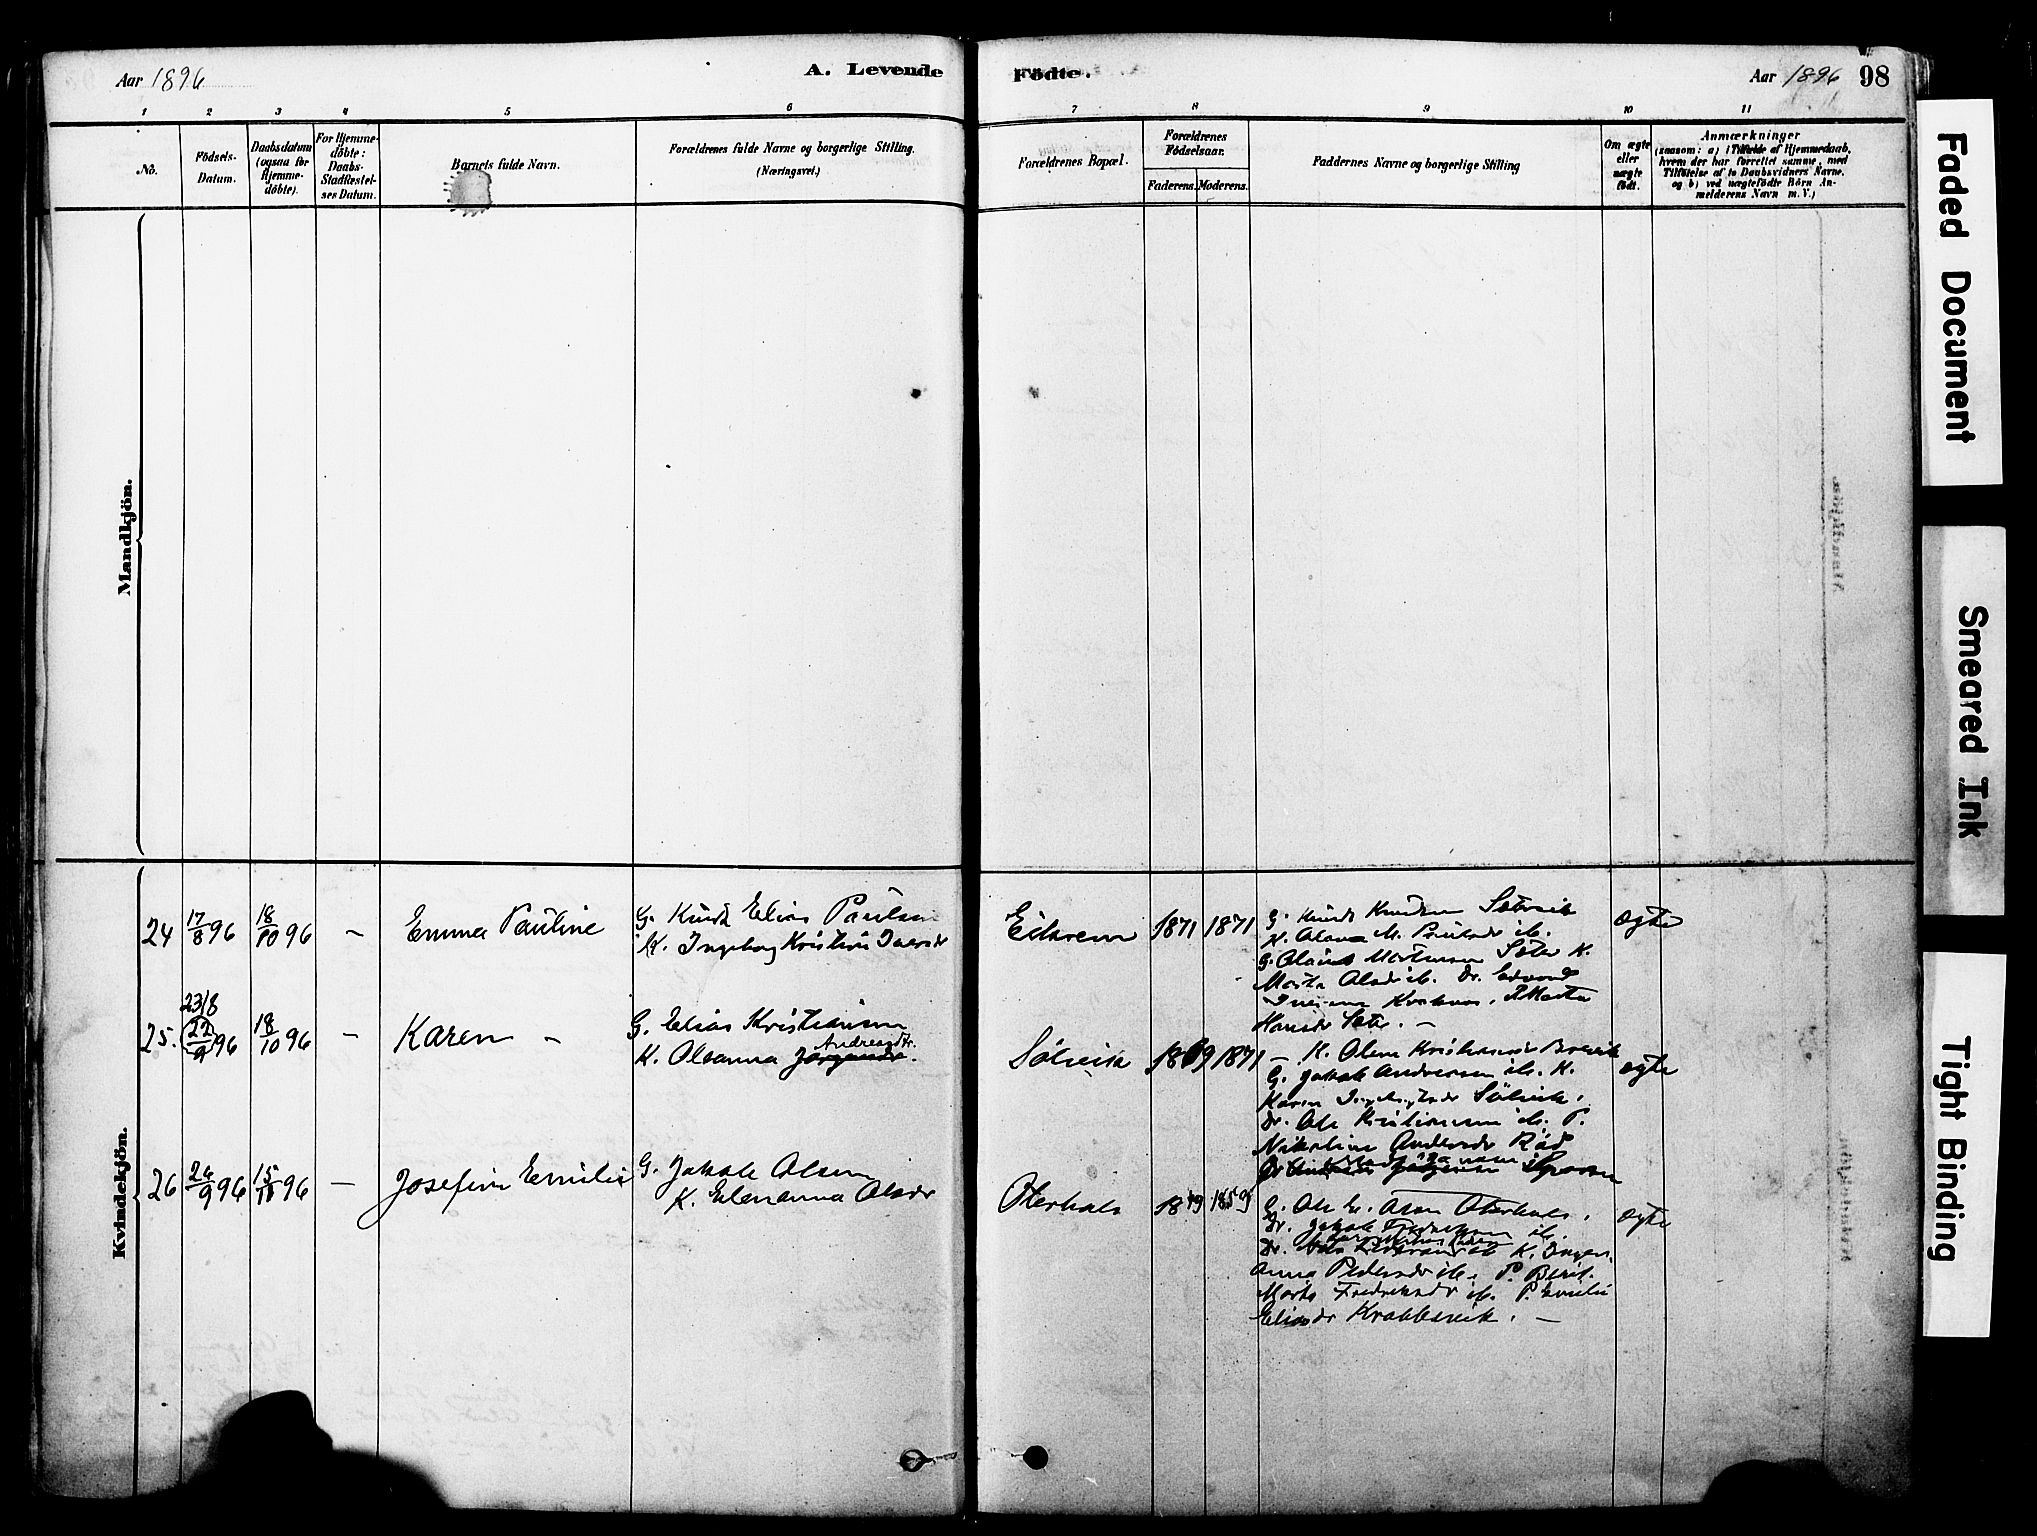 Aar 1896
A. Levende
Födte.
Aar 1896
98
1 2 3 4 5 6 7 8 9 10 11
No.
Födsels-
Datum.
Daabsdatum
(ogsaa for
Hjemme-
döbte).
For Hjemme-
döbte:
Daabs-
Stadfæstel-
ses Datum.
Barnets fulde Navn.
Forældrenes fulde Navne og borgerlige Stilling.
(Næringsvei.)
Forældrenes Bopæl.
Forældrenes
Födselsaar.
Faderens. Moderens.
Faddernes Navne og borgerlige Stilling
Om ægte
eller
uægte
födt.
Anmærkninger
(saasom: a) i Tilfælde af Hjemmedaab,
hvem der har forrettet samme, med
Tilföielse af to Daabsvidners Navne,
og b) ved uægtefödte Börn An-
melderens Navn m. V.)
Mandkjön.
Kvindekjön.
24 17/8 96 18/10 96 – Emma Pauline
G. Knut Elias Paulsen
K. Ingeborg Kristine Iversdr
Eikrem 1871 1871
G. Knut Knutsen Sætervik
K. Olava M. Paulsdr ib.
G. Olaus Mortensen Sæter K.
Marta Olsdr ib. Dr. Edvard
Iversen Kvaknes. P. Marta
Hansdr Sæter. –
ægte
25. 23/8 22/9 96 18/10 96 – Karen –
G. Elias Kristiansen
Andreasdtr.
K. Oleanna Jörgensdr.
Sölvik 1869 1871
– K. Olava Kristiansdr Brevik
G. Jakob Andersen ib. K.
Karen Ingebrigtsdr Sölvik.
Dr. Ole Kristiansen ib. P.
Nikoline Andersdr Röd
ægte
26 26/9 96 15/11 96 – Josefine Emilie
G. Jakob Olsen
K. Elenanna Olsdr
Oterhals 1849 1859
G. Ole E. Aron Oterhals.
Dr. Jakob Fredriksen ib.
K. Inger
Anna Pedersdr ib. P. Berit
Marta Fredriksdr ib. P. Emilie
Eliasdr Krabbesvik. –
ægte
Faded Document
Smeared Ink
Tight Binding